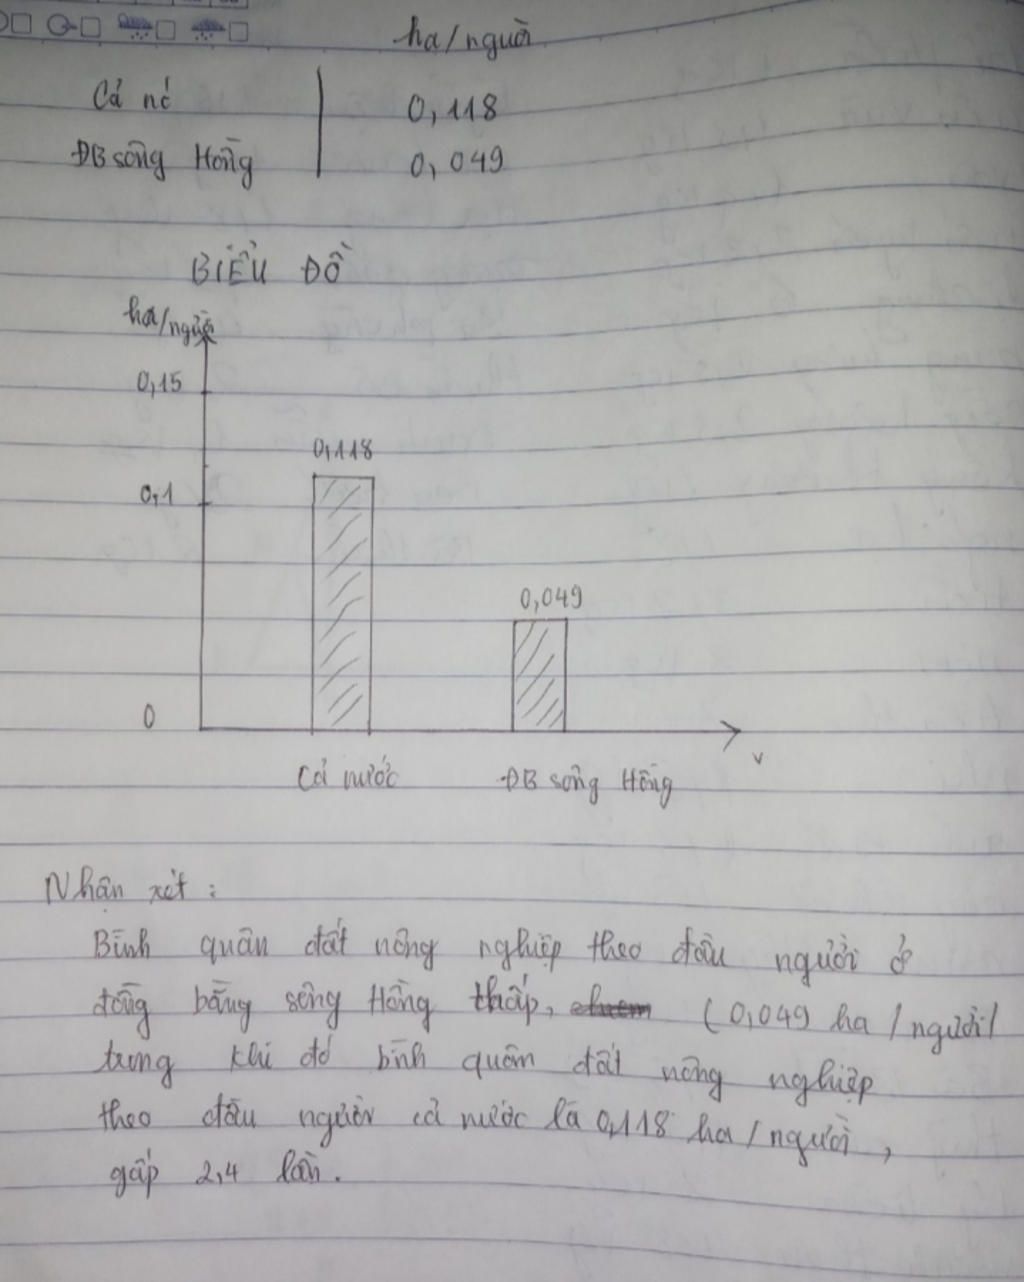 ha/người
Cả nc 0,118
ĐB sông Hồng 0,049
BIỂU ĐỒ
ha/người
0,15
0,118
0,1
0,049
0
v
Cả nước ĐB sông Hồng
Nhận xét :
Bình quân đất nông nghiệp theo đầu người ở
đồng bằng sông Hồng thấp, (0,049 ha/người)
trong khi đó bình quân đất nông nghiệp
theo đầu người cả nước là 0,118 ha/người,
gấp 2,4 lần.